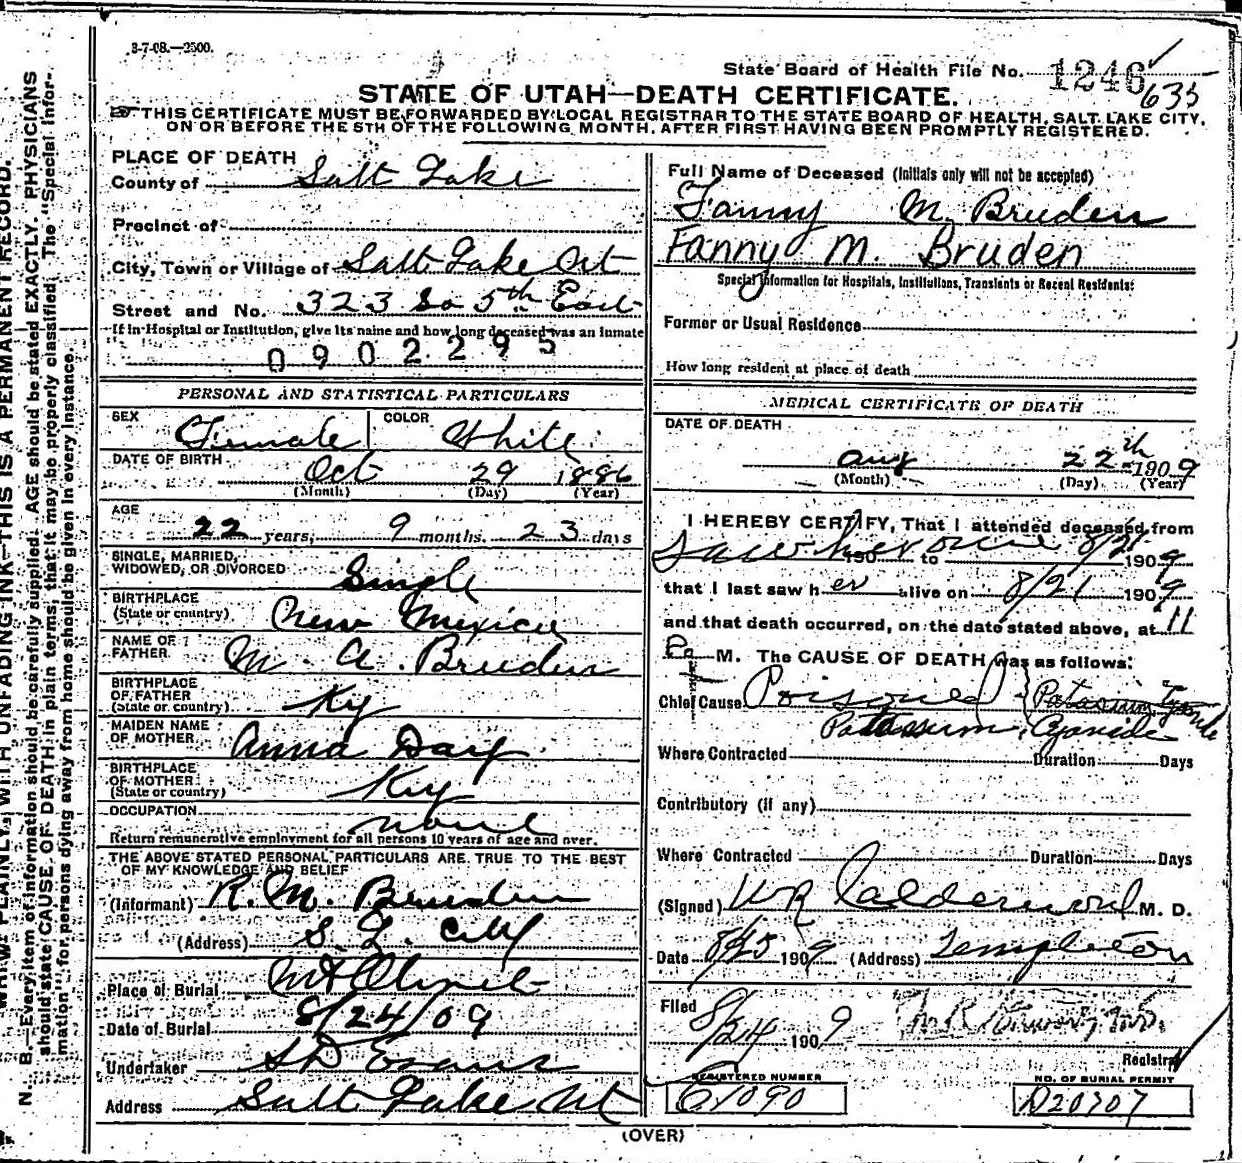 3-7-08.—2500.
State Board of Health File No. 1246
635
STATE OF UTAH—DEATH CERTIFICATE.
THIS CERTIFICATE MUST BE FORWARDED BY LOCAL REGISTRAR TO THE STATE BOARD OF HEALTH, SALT LAKE CITY,
ON OR BEFORE THE 5TH OF THE FOLLOWING MONTH, AFTER FIRST HAVING BEEN PROMPTLY REGISTERED.
PLACE OF DEATH
County of Salt Lake
Precinct of
City, Town or Village of Salt Lake Ut
Street and No. 323 So 5th East
If in Hospital or Institution, give its name and how long deceased was an inmate
0902295
PERSONAL AND STATISTICAL PARTICULARS
SEX Female COLOR White
DATE OF BIRTH Oct 29 1886
(Month) (Day) (Year)
AGE
22 years, 9 months. 23 days
SINGLE, MARRIED,
WIDOWED, OR DIVORCED Single
BIRTHPLACE
(State or country) New Mexico
NAME OF
FATHER M. A. Bruden
BIRTHPLACE
OF FATHER
(State or country) Ky
MAIDEN NAME
OF MOTHER Anna Day
BIRTHPLACE
OF MOTHER
(State or country) Ky
OCCUPATION
none
Return remunerative employment for all persons 10 years of age and over.
THE ABOVE STATED PERSONAL PARTICULARS ARE TRUE TO THE BEST
OF MY KNOWLEDGE AND BELIEF
(Informant) R. M. Bruden
(Address) S. L. City
Place of Burial Mt Olivet
Date of Burial 8/24/09
Undertaker S D Evans
Address Salt Lake Ut
Full Name of Deceased (Initials only will not be accepted)
Fanny M. Bruden
Fanny M. Bruden
Special Information for Hospitals, Institutions, Transients or Recent Residents:
Former or Usual Residence
How long resident at place of death
MEDICAL CERTIFICATE OF DEATH
DATE OF DEATH
Aug 22th 1909
(Month) (Day) (Year)
I HEREBY CERTIFY, That I attended deceased from
Saw her once 190 to 8/21 1909
that I last saw her alive on 8/21 1909
and that death occurred, on the date stated above, at 11
P M. The CAUSE OF DEATH was as follows:
Chief Cause Poisoned Potassium
Potassium Cyanide
Where Contracted Duration Days
Contributory (if any)
Where Contracted Duration Days
(Signed) W R Calderwood M. D.
Date 8/25 1909 (Address) Templeton
Filed 8/24 1909
Registrar
REGISTERED NUMBER
NO. OF BURIAL PERMIT
D20707
(OVER)
WRITE PLAINLY, WITH UNFADING INK—THIS IS A PERMANENT RECORD.
N. B.—Every item of information should be carefully supplied. AGE should be stated EXACTLY. PHYSICIANS
should state CAUSE OF DEATH in plain terms, that it may be properly classified. The "Special Infor-
mation" for persons dying away from home should be given in every instance.